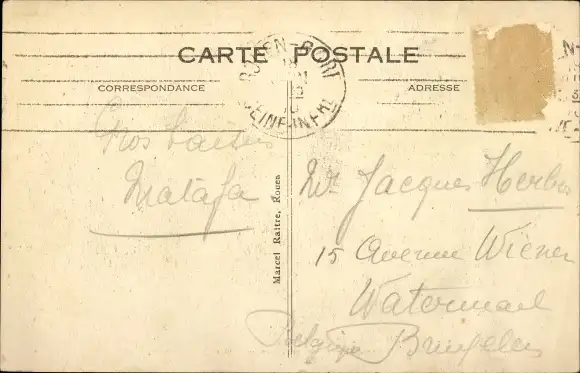 CARTE POSTALE
CORRESPONDANCE
ADRESSE
ROUEN-PORT
SEINE-INFRE
Gros baisers
Matafa
Marcel Raitre, Rouen
Mr Jacques Herbos
15 Avenue Wiener
Watermael
Belgique Bruxelles